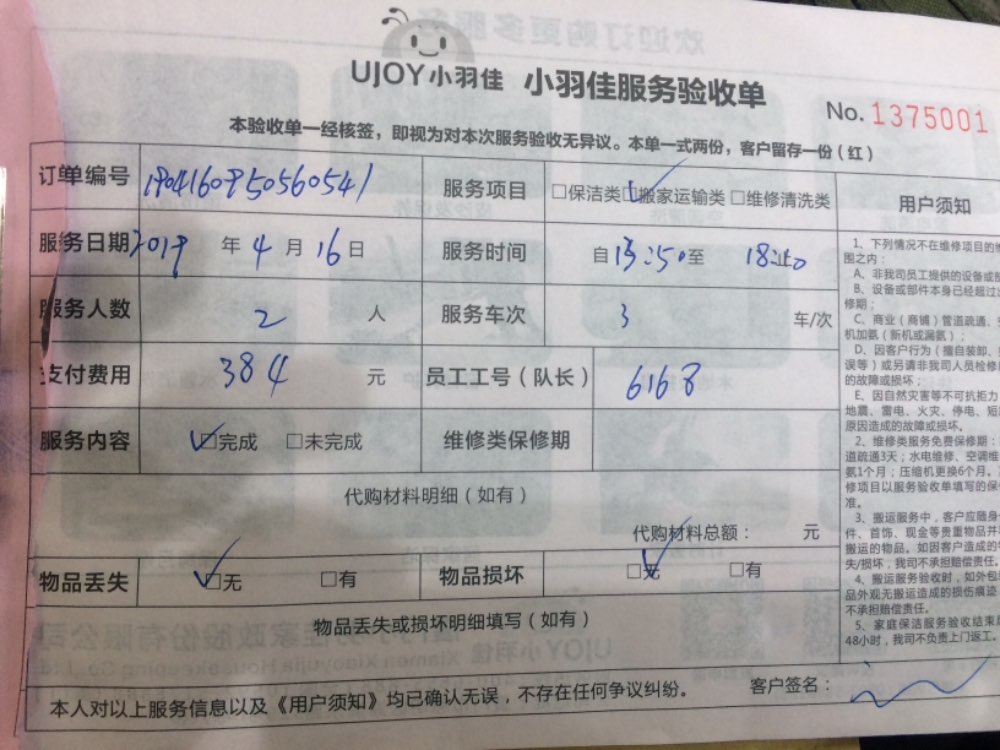 UJOY小羽佳 小羽佳服务验收单
No. 1375001
本验收单一经核签，即视为对本次服务验收无异议。本单一式两份，客户留存一份（红）
订单编号 1904160850560541 服务项目 □保洁类 □搬家运输类 □维修清洗类
服务日期 2019 年 4 月 16 日 服务时间 自 13:50 至 18 止
服务人数 2 人 服务车次 3 车/次
支付费用 384 元 员工工号（队长） 6168
服务内容 □完成 □未完成 维修类保修期
代购材料明细（如有）
代购材料总额： 元
物品丢失 □无 □有 物品损坏 □无 □有
物品丢失或损坏明细填写（如有）
本人对以上服务信息以及《用户须知》均已确认无误，不存在任何争议纠纷。 客户签名：
用户须知
1、下列情况不在维修项目的
围之内：
A、非我司员工提供的设备或
B、设备或部件本身已经超过
修期；
C、商业（商铺）管道疏通、
机加氨（新机或漏氨）；
D、因客户行为（擅自装卸、
误等）或另请非我司人员检修
的故障或损坏；
E、因自然灾害等不可抗拒力
地震、雷电、火灾、停电、短
原因造成的故障或损坏。
2、维修类服务免费保修期：
道疏通3天；水电维修、空调维
氨1个月；压缩机更换6个月。
修项目以服务验收单填写的保
准。
3、搬运服务中，客户应随身
件、首饰、现金等贵重物品并
搬运的物品。如因客户造成的
失/损坏，我司不承担赔偿责任。
4、搬运服务验收时，如外包
品外观无搬运造成的损伤痕迹
不承担赔偿责任。
5、家庭保洁服务验收结束
48小时，我司不负责上门返工。